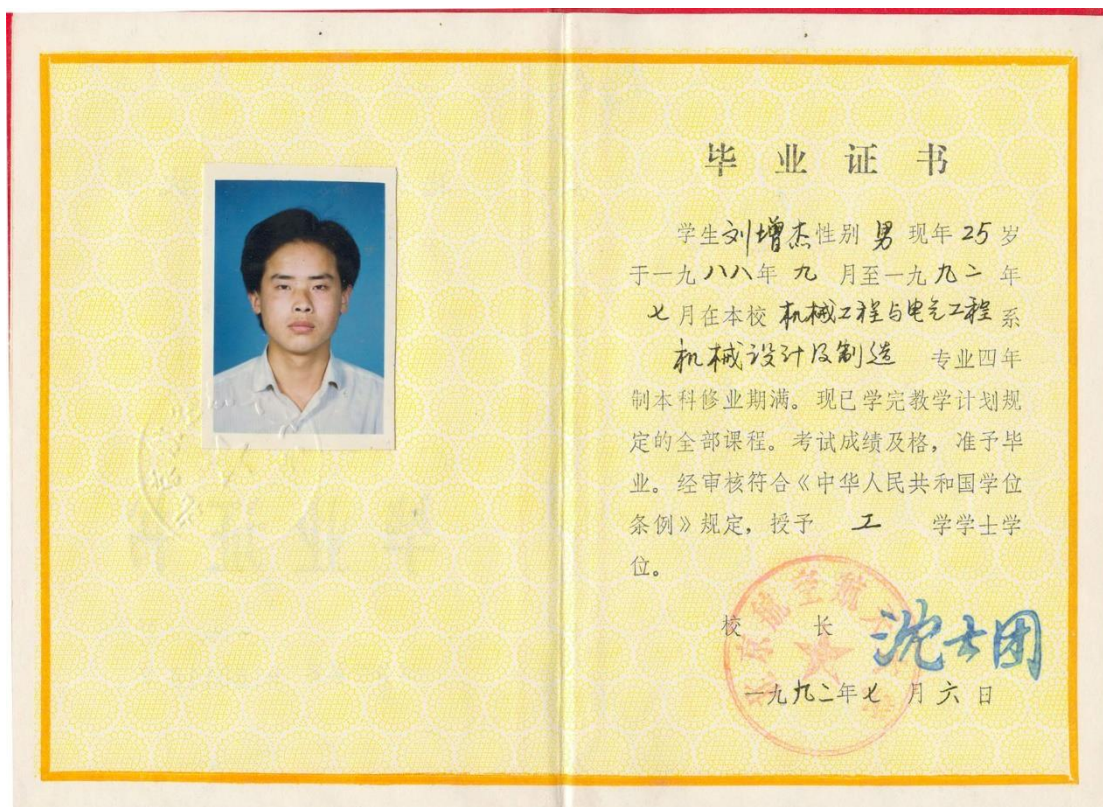 毕业证书
学生刘增杰性别 男 现年 25 岁
于一九八八年 九 月至一九九二 年
七月在本校 机械工程与电气工程 系
机械设计及制造 专业四年
制本科修业期满。现已学完教学计划规
定的全部课程。考试成绩及格，准予毕
业。经审核符合《中华人民共和国学位
条例》规定，授予 工 学学士学
位。
北京航空航天
校 长 沈士团
一九九二年七 月 六 日